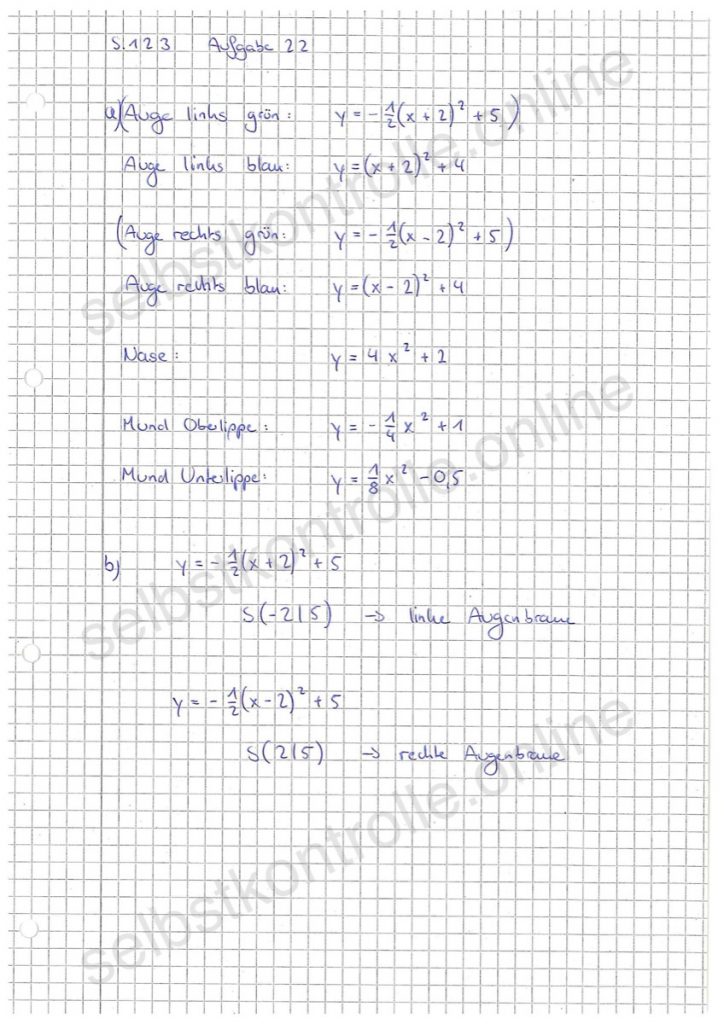 S.123 Aufgabe 22
a) (Auge links grün: y = -½(x + 2)² + 5)
Auge links blau: y = (x + 2)² + 4
(Auge rechts grün: y = -½(x - 2)² + 5)
Auge rechts blau: y = (x - 2)² + 4
Nase: y = 4x² + 2
Mund Oberlippe: y = -¼x² + 1
Mund Unterlippe: y = ⅛x² - 0,5
b) y = -½(x + 2)² + 5
S(-2|5) → linke Augenbraue
y = -½(x - 2)² + 5
S(2|5) → rechte Augenbraue
selbstkontrolle.online
selbstkontrolle.online
selbstkontrolle.online